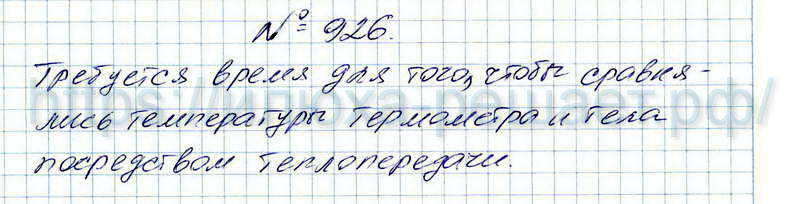 № 926.
Требуется время для того, чтобы сравня-
лись температуры термометра и тела
посредством теплопередачи.